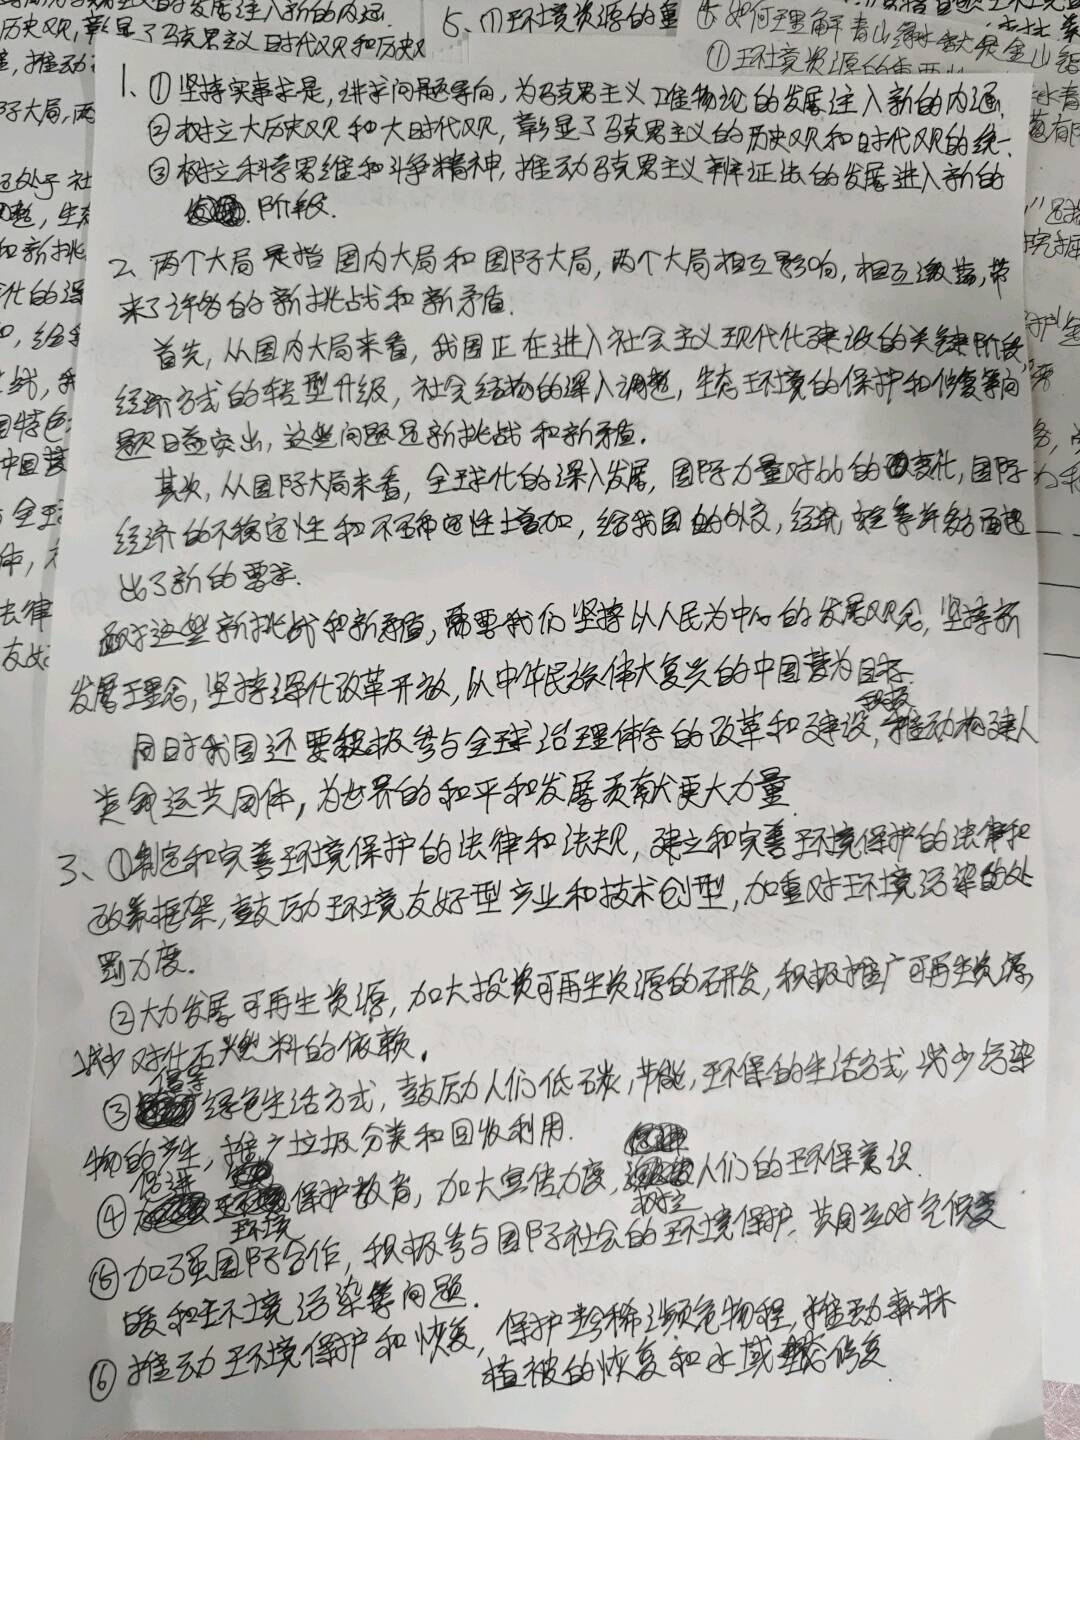 历史观,彰显了马克思主义时代观和历史观
5、(1)环境资源的重
④如何理解青山绿水就是金山银
①环境资源的重要
1、①坚持实事求是,讲求问题导向,为马克思主义唯物论的发展注入新的内涵.
②树立大历史观和大时代观,彰显了马克思主义的历史观和时代观的统一.
③树立科学思维和斗争精神,推动马克思主义辩证法的发展进入新的
阶段.
2、两个大局是指国内大局和国际大局,两个大局相互影响,相互激荡,带
来了许多的新挑战和新矛盾.
首先,从国内大局来看,我国正在进入社会主义现代化建设的关键阶段
经济方式的转型升级,社会结构的深入调整,生态环境的保护和修复等问
题日益突出,这些问题是新挑战和新矛盾.
其次,从国际大局来看,全球化的深入发展,国际力量对比的变化,国际
经济的不稳定性和不确定性增加,给我国的外交,经济,安全等许多方面提
出了新的要求.
面对这些新挑战和新矛盾,需要我们坚持以人民为中心的发展观念,坚持新
发展理念,坚持深化改革开放,以中华民族伟大复兴的中国梦为目标.
同时我国还要积极参与全球治理体系的改革和建设,积极推动构建人
类命运共同体,为世界的和平和发展贡献更大力量
3、①制定和完善环境保护的法律和法规,建立和完善环境保护的法律和
政策框架,鼓励环境友好型产业和技术创型,加重对环境污染的处
罚力度.
②大力发展可再生资源,加大投资可再生资源的研发,积极推广可再生资源,
减少对化石燃料的依赖.
③倡导绿色生活方式,鼓励人们低碳,节能,环保的生活方式,减少污染
物的产生,推广垃圾分类和回收利用.
④促进环境保护教育,加大宣传力度,树立人们的环保意识.
⑤加强国际合作,积极参与国际社会的环境保护,共同应对气候变
暖和环境污染等问题.
⑥推动环境保护和恢复,保护珍稀濒危物程,推动森林
植被的恢复和水域修复.